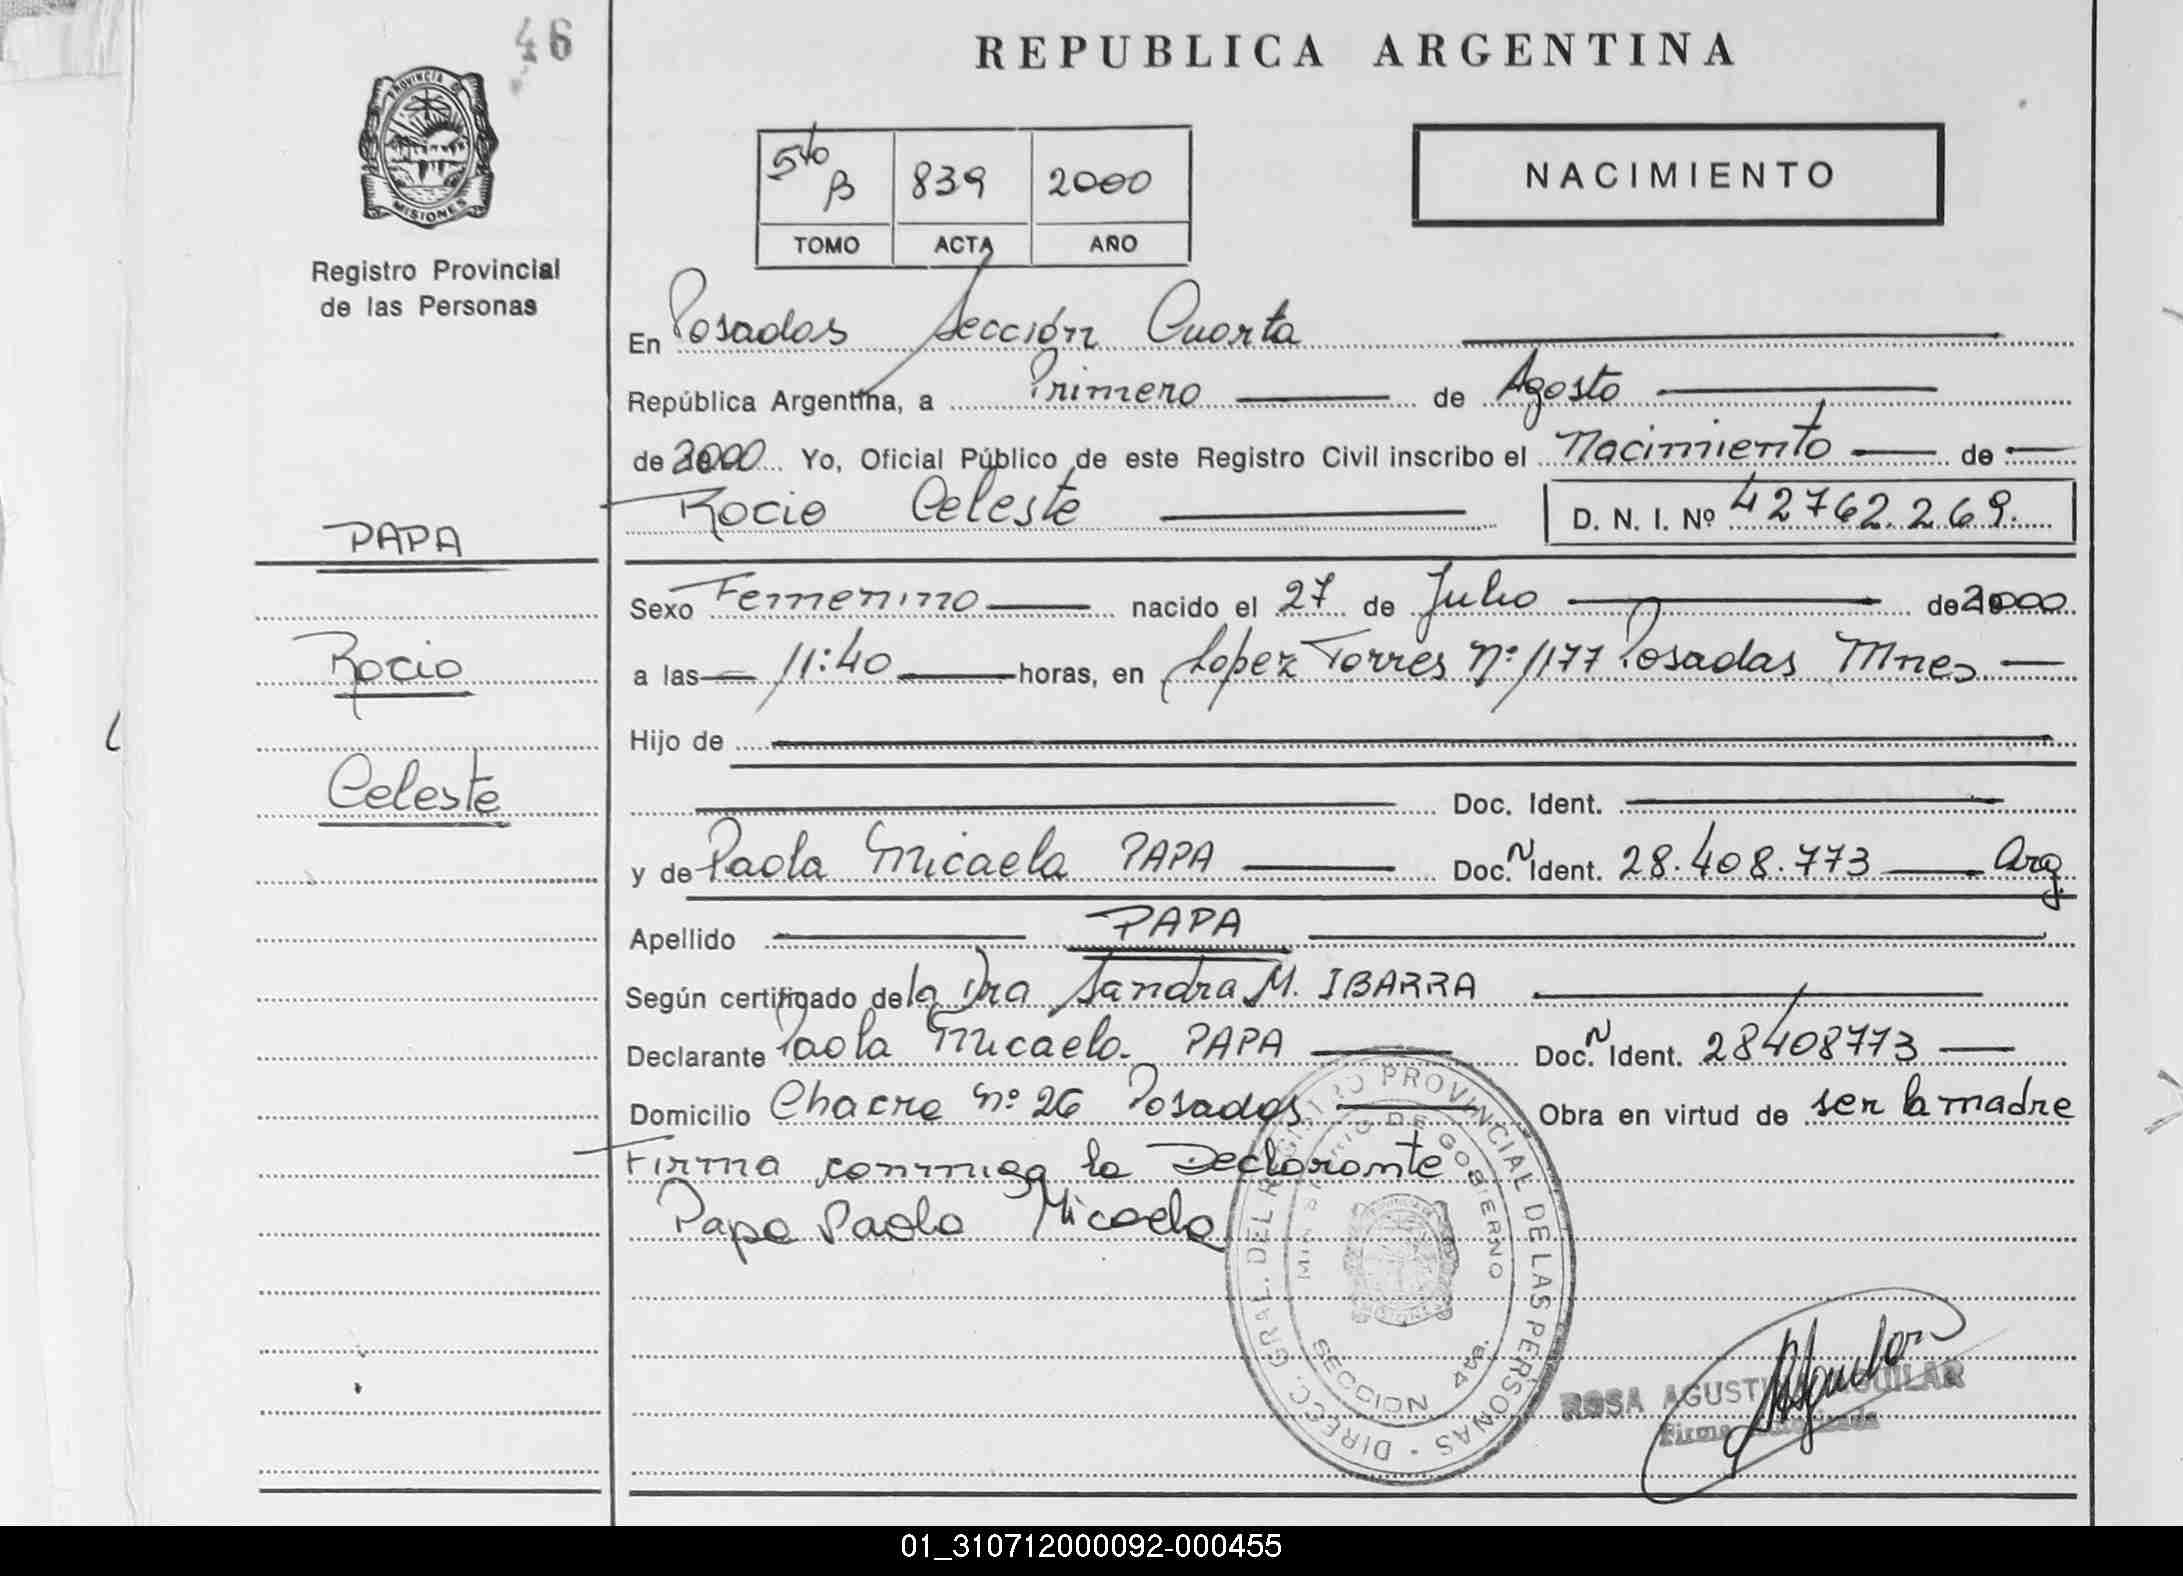 46
REPUBLICA ARGENTINA
PROVINCIA D
MISIONES
Registro Provincial
de las Personas
5to B 839 2000
TOMO ACTA AÑO
NACIMIENTO
En Posadas Sección Cuarta
República Argentina, a Primero de Agosto
de 2000 Yo, Oficial Público de este Registro Civil inscribo el Nacimiento de
Rocio Celeste D. N. I. Nº 42762.269.
PAPA
Rocio
Celeste
Sexo Femenino nacido el 27 de Julio de 2000
a las 11:40 horas, en Lopez Torres Nº 1177 Posadas Mnes
Hijo de
Doc. Ident.
y de Paola Micaela PAPA Doc. N Ident. 28.408.773 Arg.
Apellido PAPA
Según certificado de la Dra Sandra M. IBARRA
Declarante Paola Micaela PAPA Doc. N Ident. 28408773
Domicilio Chacra nº 26 Posadas Obra en virtud de ser la madre
Firma conmigo la Declarante
Papa Paola Micaela
DIRECC. GRAL. DEL REGISTRO PROVINCIAL DE LAS PERSONAS
MINISTERIO DE GOBIERNO
SECCION 4ta.
ROSA AGUSTINA AGUILAR
Firma Autorizada
01_310712000092-000455